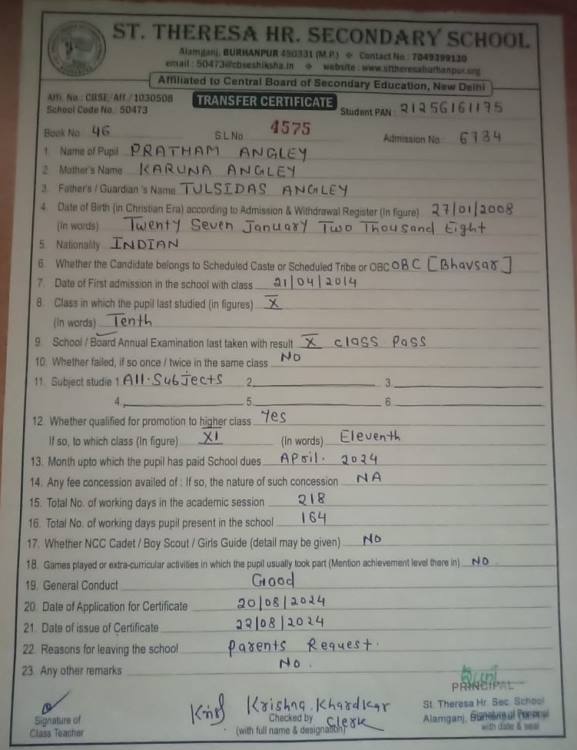 ST. THERESA HR. SECONDARY SCHOOL
Alamganj, BURHANPUR 450331 (M.P.) Contact No.: 7049399130
email : 50473@cbseshiksha.in website : www.sttheresaburhanpur.org
Affiliated to Central Board of Secondary Education, New Delhi
Affi. No.: CBSE/Aff./1030508
TRANSFER CERTIFICATE
School Code No.: 50473
Student PAN : 21256161175
Book No. 46 S.L.No. 4575 Admission No. 6734
1. Name of Pupil PRATHAM ANGLEY
2. Mother's Name KARUNA ANGLEY
3. Father's / Guardian 's Name TULSIDAS ANGLEY
4. Date of Birth (in Christian Era) according to Admission & Withdrawal Register (In figure) 27/01/2008
(In words) Twenty Seven January Two Thousand Eight
5. Nationality INDIAN
6. Whether the Candidate belongs to Scheduled Caste or Scheduled Tribe or OBC OBC [Bhavsar]
7. Date of First admission in the school with class 21/04/2014
8. Class in which the pupil last studied (in figures) X
(In words) Tenth
9. School / Board Annual Examination last taken with result X class Pass
10. Whether failed, if so once / twice in the same class No
11. Subject studie 1. All-Subjects 2. 3.
4. 5. 6.
12. Whether qualified for promotion to higher class Yes
If so, to which class (In figure) XI (In words) Eleventh
13. Month upto which the pupil has paid School dues April. 2024
14. Any fee concession availed of : If so, the nature of such concession NA
15. Total No. of working days in the academic session 218
16. Total No. of working days pupil present in the school 164
17. Whether NCC Cadet / Boy Scout / Girls Guide (detail may be given) No
18. Games played or extra-curricular activities in which the pupil usually took part (Mention achievement level there in) No
19. General Conduct Good
20. Date of Application for Certificate 20/08/2024
21. Date of issue of Certificate 22/08/2024
22. Reasons for leaving the school Parents Request.
23. Any other remarks No.
PRINCIPAL
Krishna. Khardkar
St. Theresa Hr. Sec. School
Signature of Checked by Clerk Alamganj, Burhanpur (M.P.)
Class Teacher (with full name & designation) with date & seal